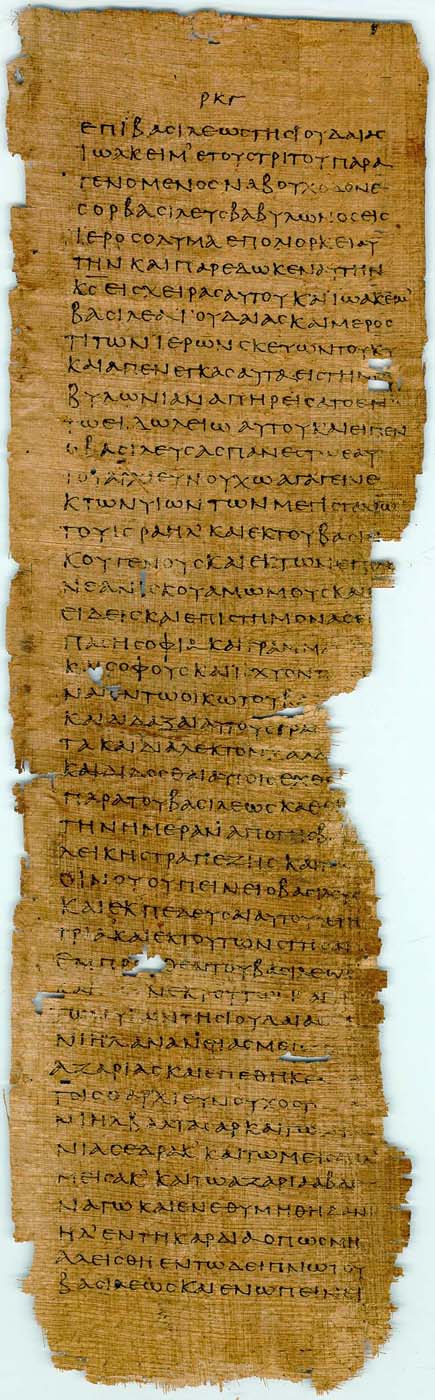 ΡΚΓ
ΕΠΙΒΑΣΙΛΕΩΣΤΗΣΙΟΥΔΑΙΑΣ
ΙΩΑΚΕΙΜʼ ΕΤΟΥΣΤΡΙΤΟΥΠΑΡΑ
ΓΕΝΟΜΕΝΟΣΝΑΒΟΥΧΟΔΟΝΟ
ΣΟΡΒΑΣΙΛΕΥΣΒΑΒΥΛΩΝΟΣΕΙΣ
ΙΕΡΟΣΟΛΥΜΑΕΠΟΛΙΟΡΚΕΙΑΥ
ΤΗΝΚΑΙΠΑΡΕΔΩΚΕΝΑΥΤΗΝ
ΚΣΕΙΣΧΕΙΡΑΣΑΥΤΟΥΚΑΙΙΩΑΚΕΙΜʼ
ΒΑΣΙΛΕΑΙΟΥΔΑΙΑΣΚΑΙΜΕΡΟΣ
ΤΙΤΩΝΙΕΡΩΝΣΚΕΥΩΝΤΟΥΚΥ
ΚΑΙΑΠΕΝΕΓΚΑΣΑΥΤΑΕΙΣΤΗΝ
ΒΥΛΩΝΙΑΝΑΠΗΡΕΙΣΑΤΟΕΝ
ΤΩΕΙΔΩΛΕΙΩΑΥΤΟΥΚΑΙΕΙΠΕΝ
ΟΒΑΣΙΛΕΥΣΑΣΠΑΝΕΣΤΩΕΑΥ
ΤΟΥΑΡΧΙΕΥΝΟΥΧΩΑΓΑΓΕΙΝΕ
ΚΤΩΝΥΙΩΝΤΩΝΜΕΓΙΣΤΑΝΩΝ
ΤΟΥΙΣΡΑΗΛʼ ΚΑΙΕΚΤΟΥΒΑΣΙΛ
ΚΟΥΓΕΝΟΥΣΚΑΙΕΚΤΩΝΕΠΙΛ
ΝΕΑΝΙΣΚΟΥΑΜΩΜΟΥΣΚΑΙ
ΕΙΔΕΙΣΚΑΙΕΠΙΣΤΗΜΟΝΑΣΕ
ΠΑΣΗΣΟΦΙΑΚΑΙΓΡΑΜΜΑ
ΣΟΦΟΥΣΚΑΙΙΣΧΥΟΝΤ
ΝΑΙΕΝΤΩΟΙΚΩΤΟΥΒ
ΚΑΙΔΙΔΑΞΑΙΑΥΤΟΥΣΓΡΑ
ΤΑΚΑΙΔΙΑΛΕΚΤΟΝΧΑΛΔ
ΚΑΙΔΙΔΟΣΘΑΙΑΥΤΟΙΣΕΚΘΕ
ΠΑΡΑΤΟΥΒΑΣΙΛΕΩΣΚΑΘ
ΤΗΝΗΜΕΡΑΝΑΠΟΤΗΣΒ
ΛΕΙΚΗΣΤΡΑΠΕΖΗΣΚΑΙ
ΟΙΝΟΥΟΥΠΕΙΝΕΙΟΒΑΣΙΛΕΥΣ
ΚΑΙΕΚΠΕΔΕΥΣΑΙΑΥΤΟΥΣΕΤΗ
ΤΡΙΑΚΑΙΕΚΤΟΥΤΩΝΣΤΗΣΑΙ
ΕΜΠΡΟΣΘΕΝΤΟΥΒΑΣΙΛΕΩΣ
ΚΑΙ
ΤΗΣΙΟΥΔΑΙΑΣ
ΝΙΗΛΑΝΑΝΙΑΣΜΕΙ
ΑΖΑΡΙΑΣΚΑΙΕΠΕΘΗΚΕ
ΤΟΙΣΟΑΡΧΙΕΥΝΟΥΧΟΣ
ΝΙΗΛΒΑΛΤΑΣΑΡΚΑΙΤΩ
ΝΙΑΣΕΔΡΑΚʼ ΚΑΙΤΩΜΕΙΣΑΗΛ
ΜΕΙΣΑΚʼ ΚΑΙΤΩΑΖΑΡΙΑΑΒΔΕ
ΝΑΓΩΚΑΙΕΝΕΘΥΜΗΘΗΔΑΝΙ
ΗΛʼ ΕΝΤΗΚΑΡΔΙΑΟΠΩΣΜΗ
ΑΛΕΙΣΘΗΕΝΤΩΔΕΙΠΝΩΤΟΥ
ΒΑΣΙΛΕΩΣΚΑΙΕΝΩΠΕΙΝΕΙ